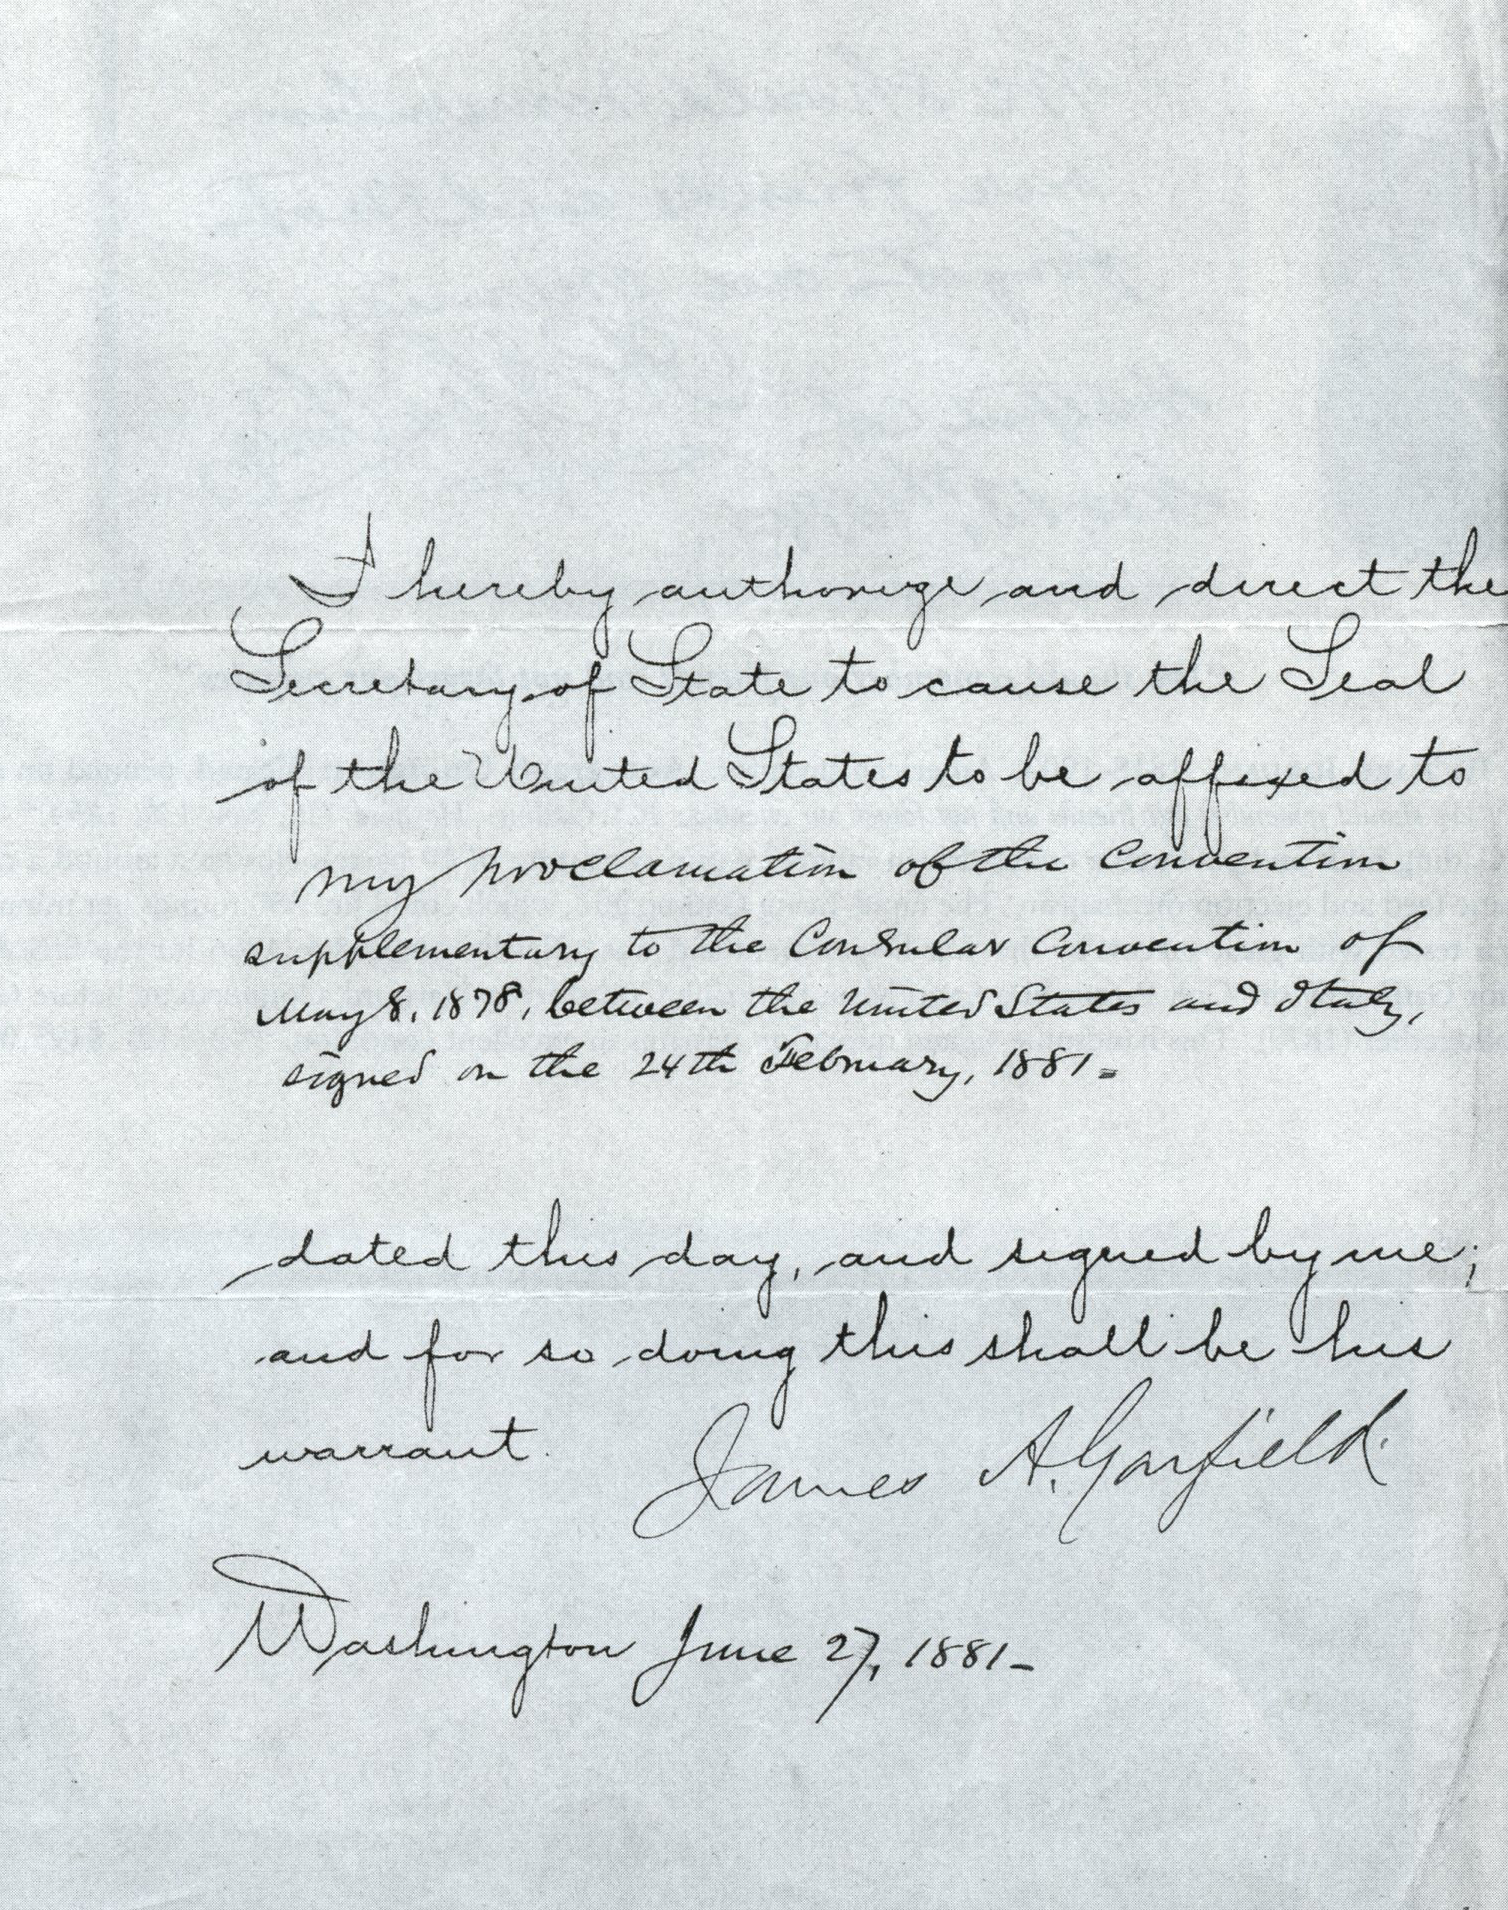 I hereby authorize and direct the
Secretary of State to cause the Seal
of the United States to be affixed to
my proclamation of the Convention
supplementary to the Consular Convention of
May 8, 1878, between the United States and Italy,
signed on the 24th February, 1881.=
dated this day, and signed by me;
and for so doing this shall be his
warrant.
James A. Garfield.
Washington June 27, 1881–